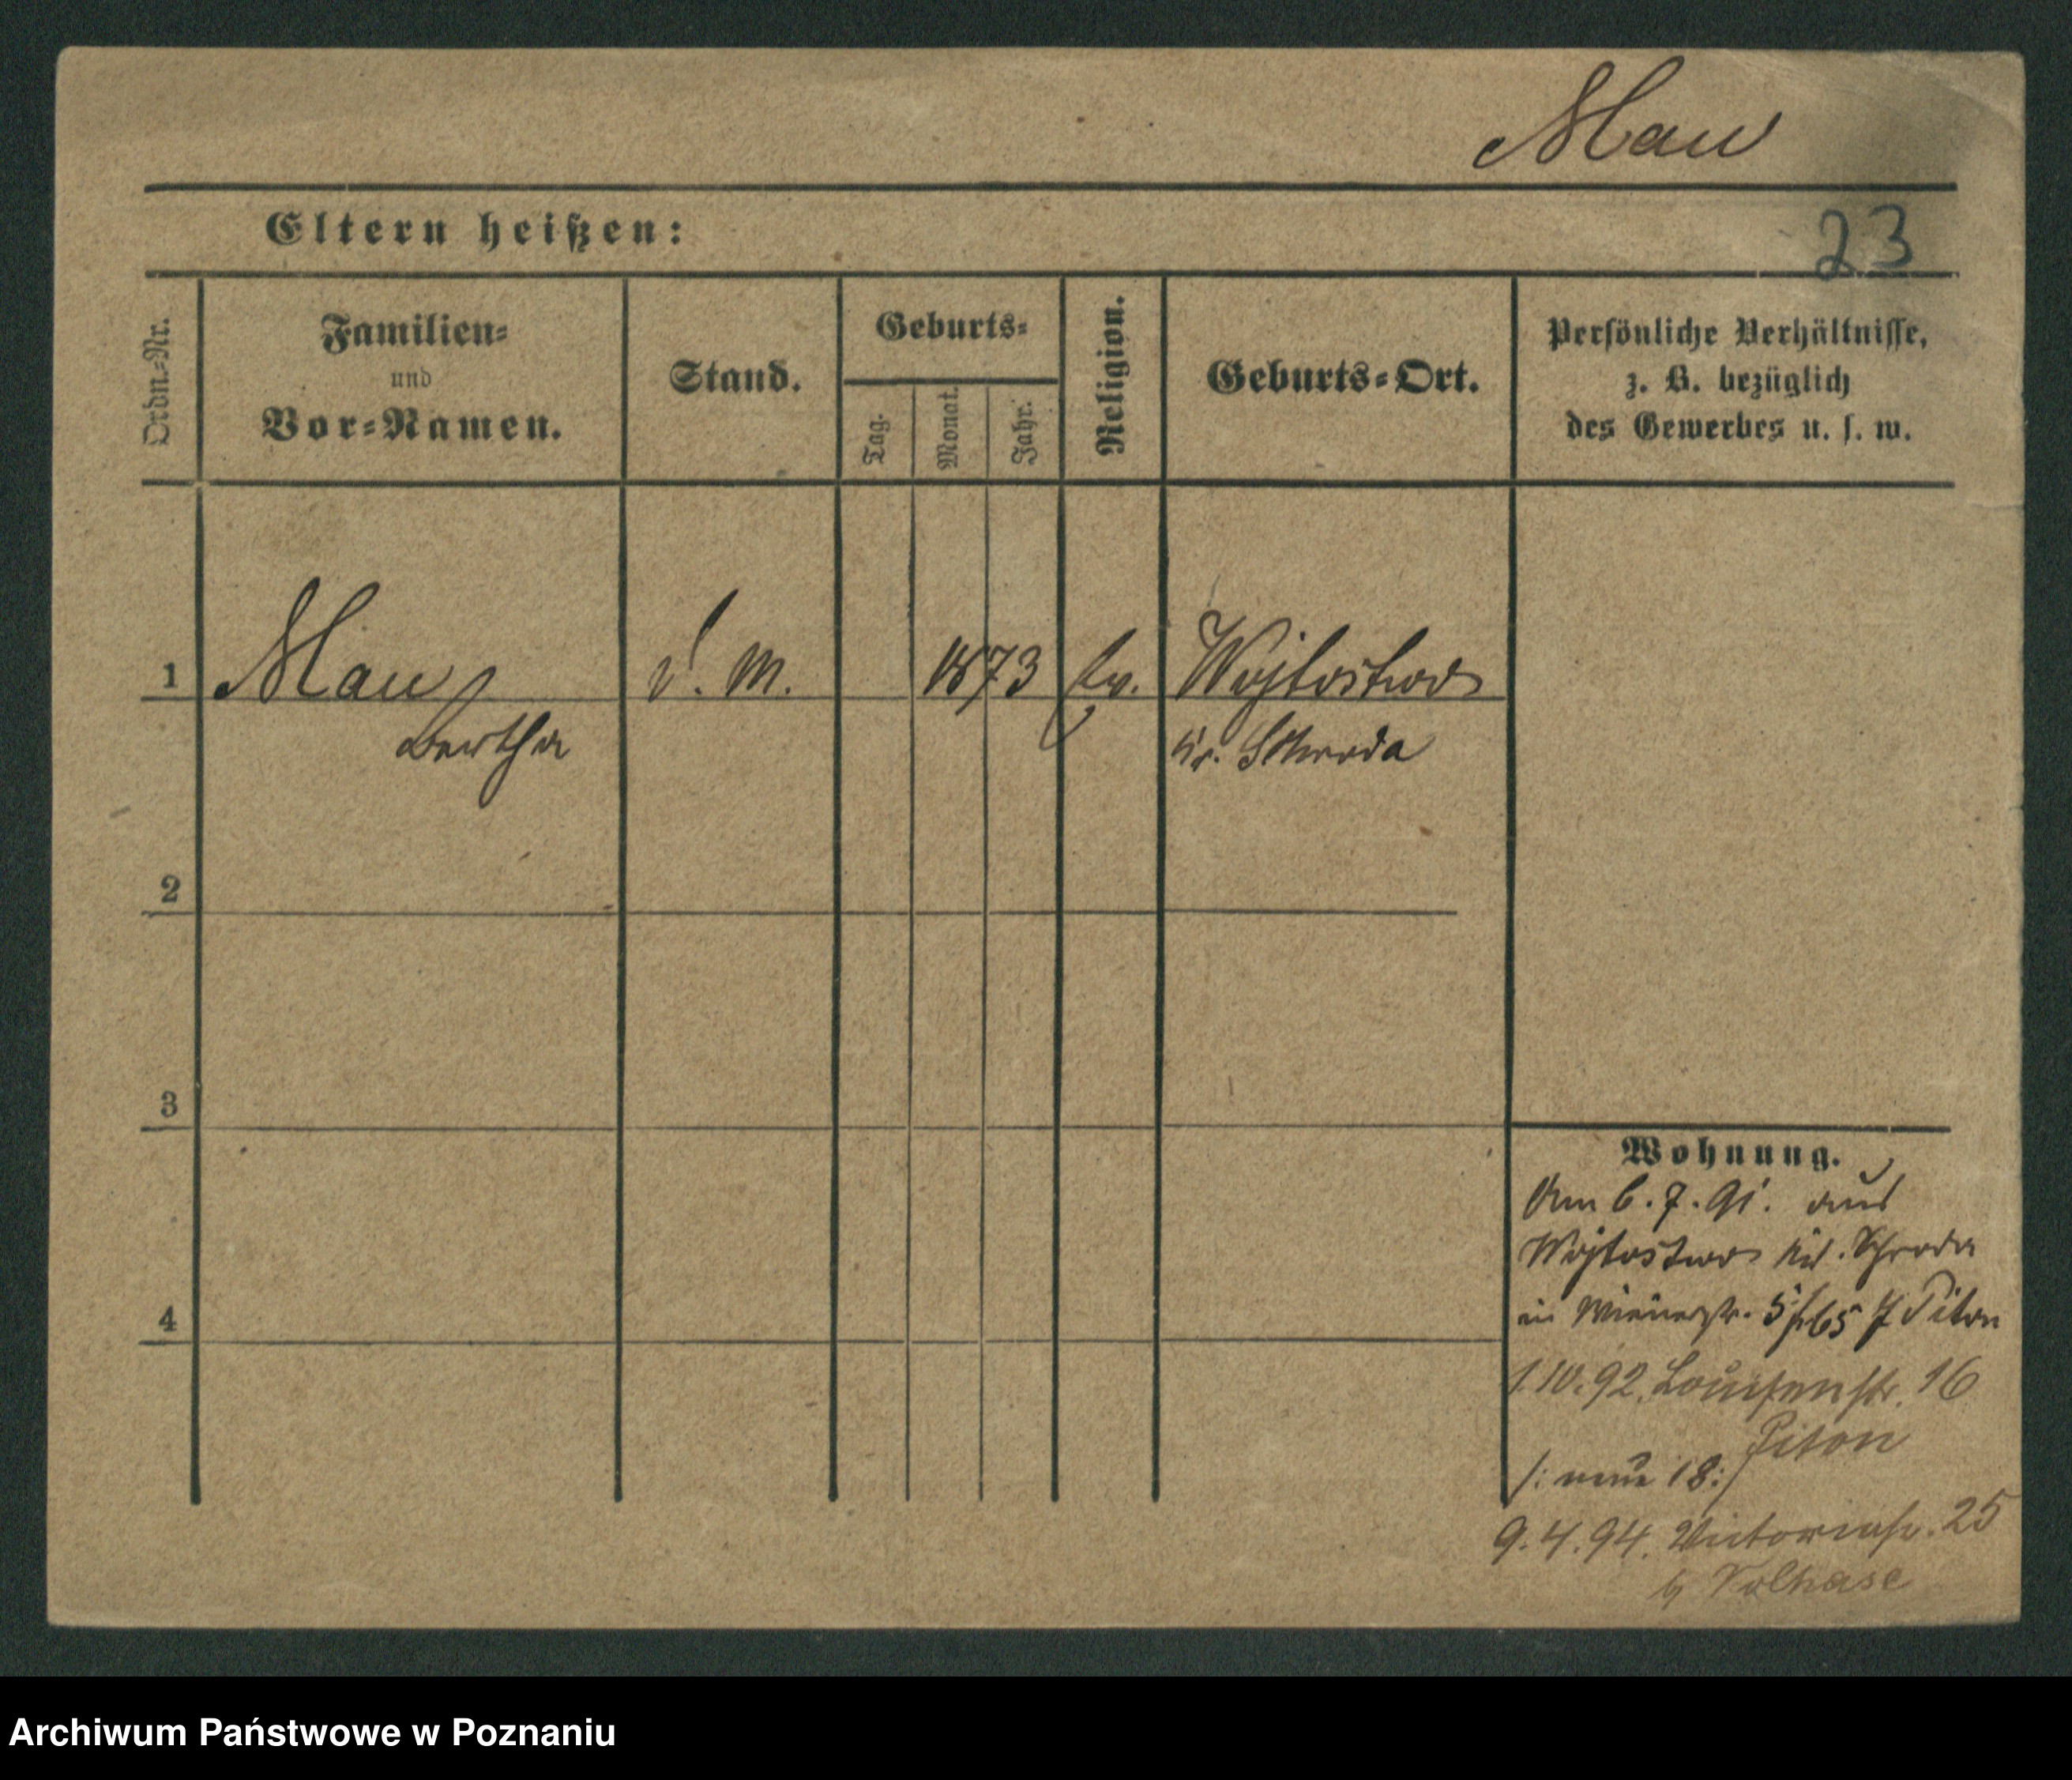 Mau
Eltern heißen:
23
Ordn.-Nr.
Familien-
und
Vor-Namen.
Stand.
Geburts-
Tag.
Monat.
Jahr.
Religion.
Geburts-Ort.
Persönliche Verhältnisse,
z. B. bezüglich
des Gewerbes u. s. w.
1 Mau d. M. 1873 Ev. Wojtostwo
Bertha Kr. Schroda
2
3
4
Wohnung.
Am 6. 7. 91. aus
Wojtostwo Kr. Schroda
in Wienerstr. 5 Piton
1.10.92. Louisenstr. 16
Piton
/: neue 18:/
9.4.94. Victoriastr. 25
b Volhase
Archiwum Państwowe w Poznaniu